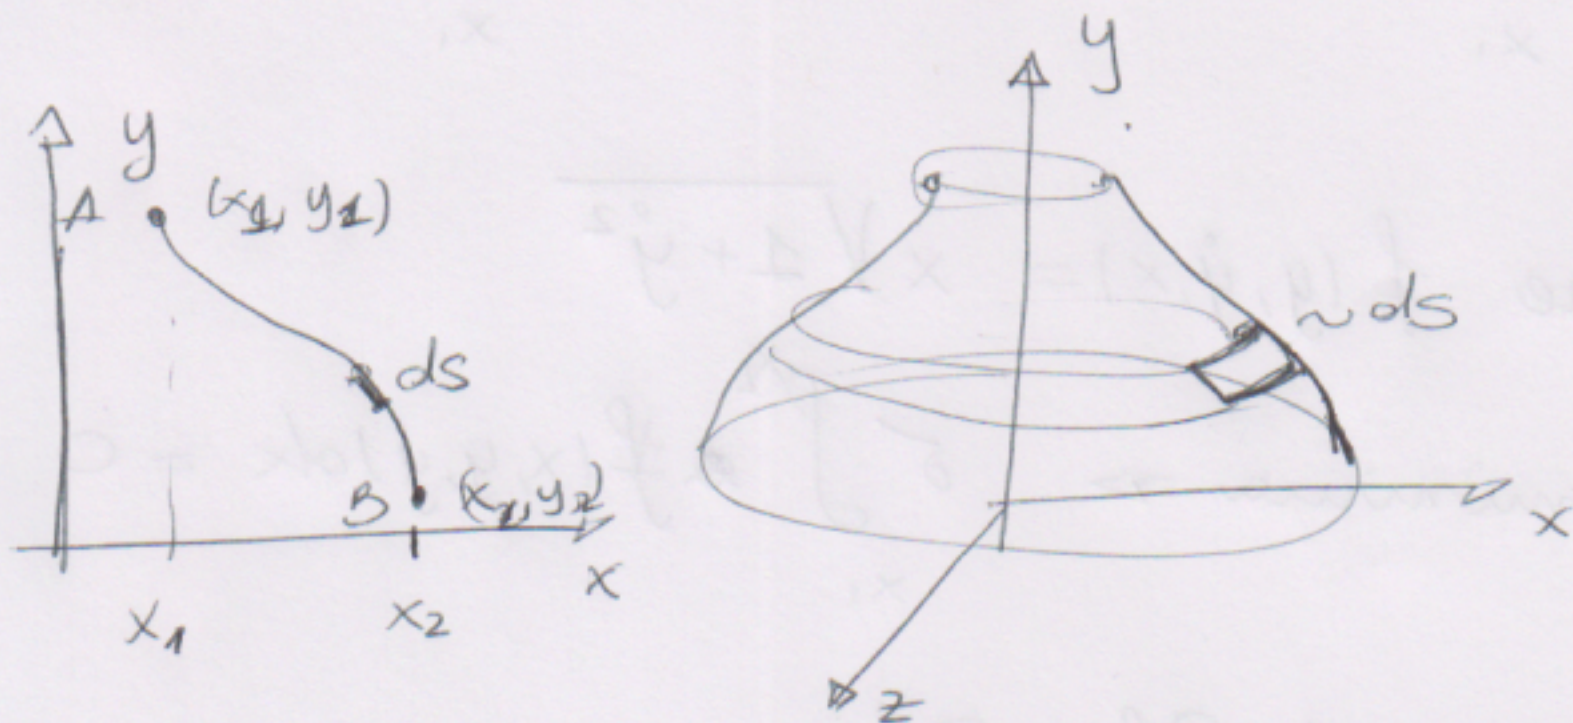 y
A (x1, y1)
ds
B (x2, y2)
x
x1 x2
y
~ds
x
z